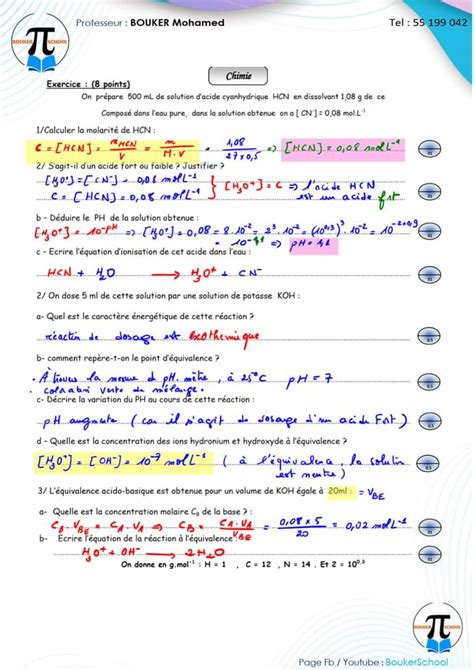 Professeur : BOUKER Mohamed
Tel : 55 199 042
BOUKER SCHOOL
π
Chimie
Exercice : (8 points)
On prépare 500 mL de solution d'acide cyanhydrique HCN en dissolvant 1,08 g de ce
Composé dans l'eau pure, dans la solution obtenue on a [ CN⁻] = 0,08 mol.L⁻¹
1/Calculer la molarité de HCN :
C = [HCN] = n HCN / V = m / M.V = 1,08 / 27x0,5 => [HCN] = 0,08 mol L⁻¹
2/ S'agit-il d'un acide fort ou faible ? Justifier ?
[H₃O⁺] = [CN⁻] = 0,08 mol L⁻¹
C = [HCN] = 0,08 mol L⁻¹
} [H₃O⁺] = C => l'acide HCN est un acide fort
b – Déduire le PH de la solution obtenue :
[H₃O⁺] = 10^-pH => [H₃O⁺] = 0,08 = 8.10⁻² = 2³.10⁻² = (10^0,3)³.10⁻² = 10^-2+0,9
= 10^-1,1 => pH = 1,1
c – Ecrire l'équation d'ionisation de cet acide dans l'eau :
HCN + H₂O → H₃O⁺ + CN⁻
2/ On dose 5 ml de cette solution par une solution de potasse KOH :
a- Quel est le caractère énergétique de cette réaction ?
réaction de dosage est exothermique
b- comment repère-t-on le point d'équivalence ?
. À travers la mesure de pH.mètre, à 25°C pH = 7
. colaabri verte de mélange.
c- Décrire la variation du PH au cours de cette réaction :
pH augmente ( car il s'agit de dosage d'un acide Fort )
d – Quelle est la concentration des ions hydronium et hydroxyde à l'équivalence ?
[H₃O⁺] = [OH⁻] = 10⁻⁷ mol L⁻¹ ( à l'équivalence, la solution est neutre )
3/ L'équivalence acido-basique est obtenue pour un volume de KOH égale à 20ml : = V BE
a- Quelle est la concentration molaire C B de la base ?
C B . V BE = C A . V A => C B = C A . V A / V BE = 0,08 x 5 / 20 = 0,02 mol L⁻¹
b- Ecrire l'équation de la réaction à l'équivalence :
H₃O⁺ + OH⁻ → 2H₂O
On donne en g.mol⁻¹ : H = 1 , C = 12 , N = 14 . Et 2 = 10^0,3
BOUKER SCHOOL
π
Page Fb / Youtube : BoukerSchool